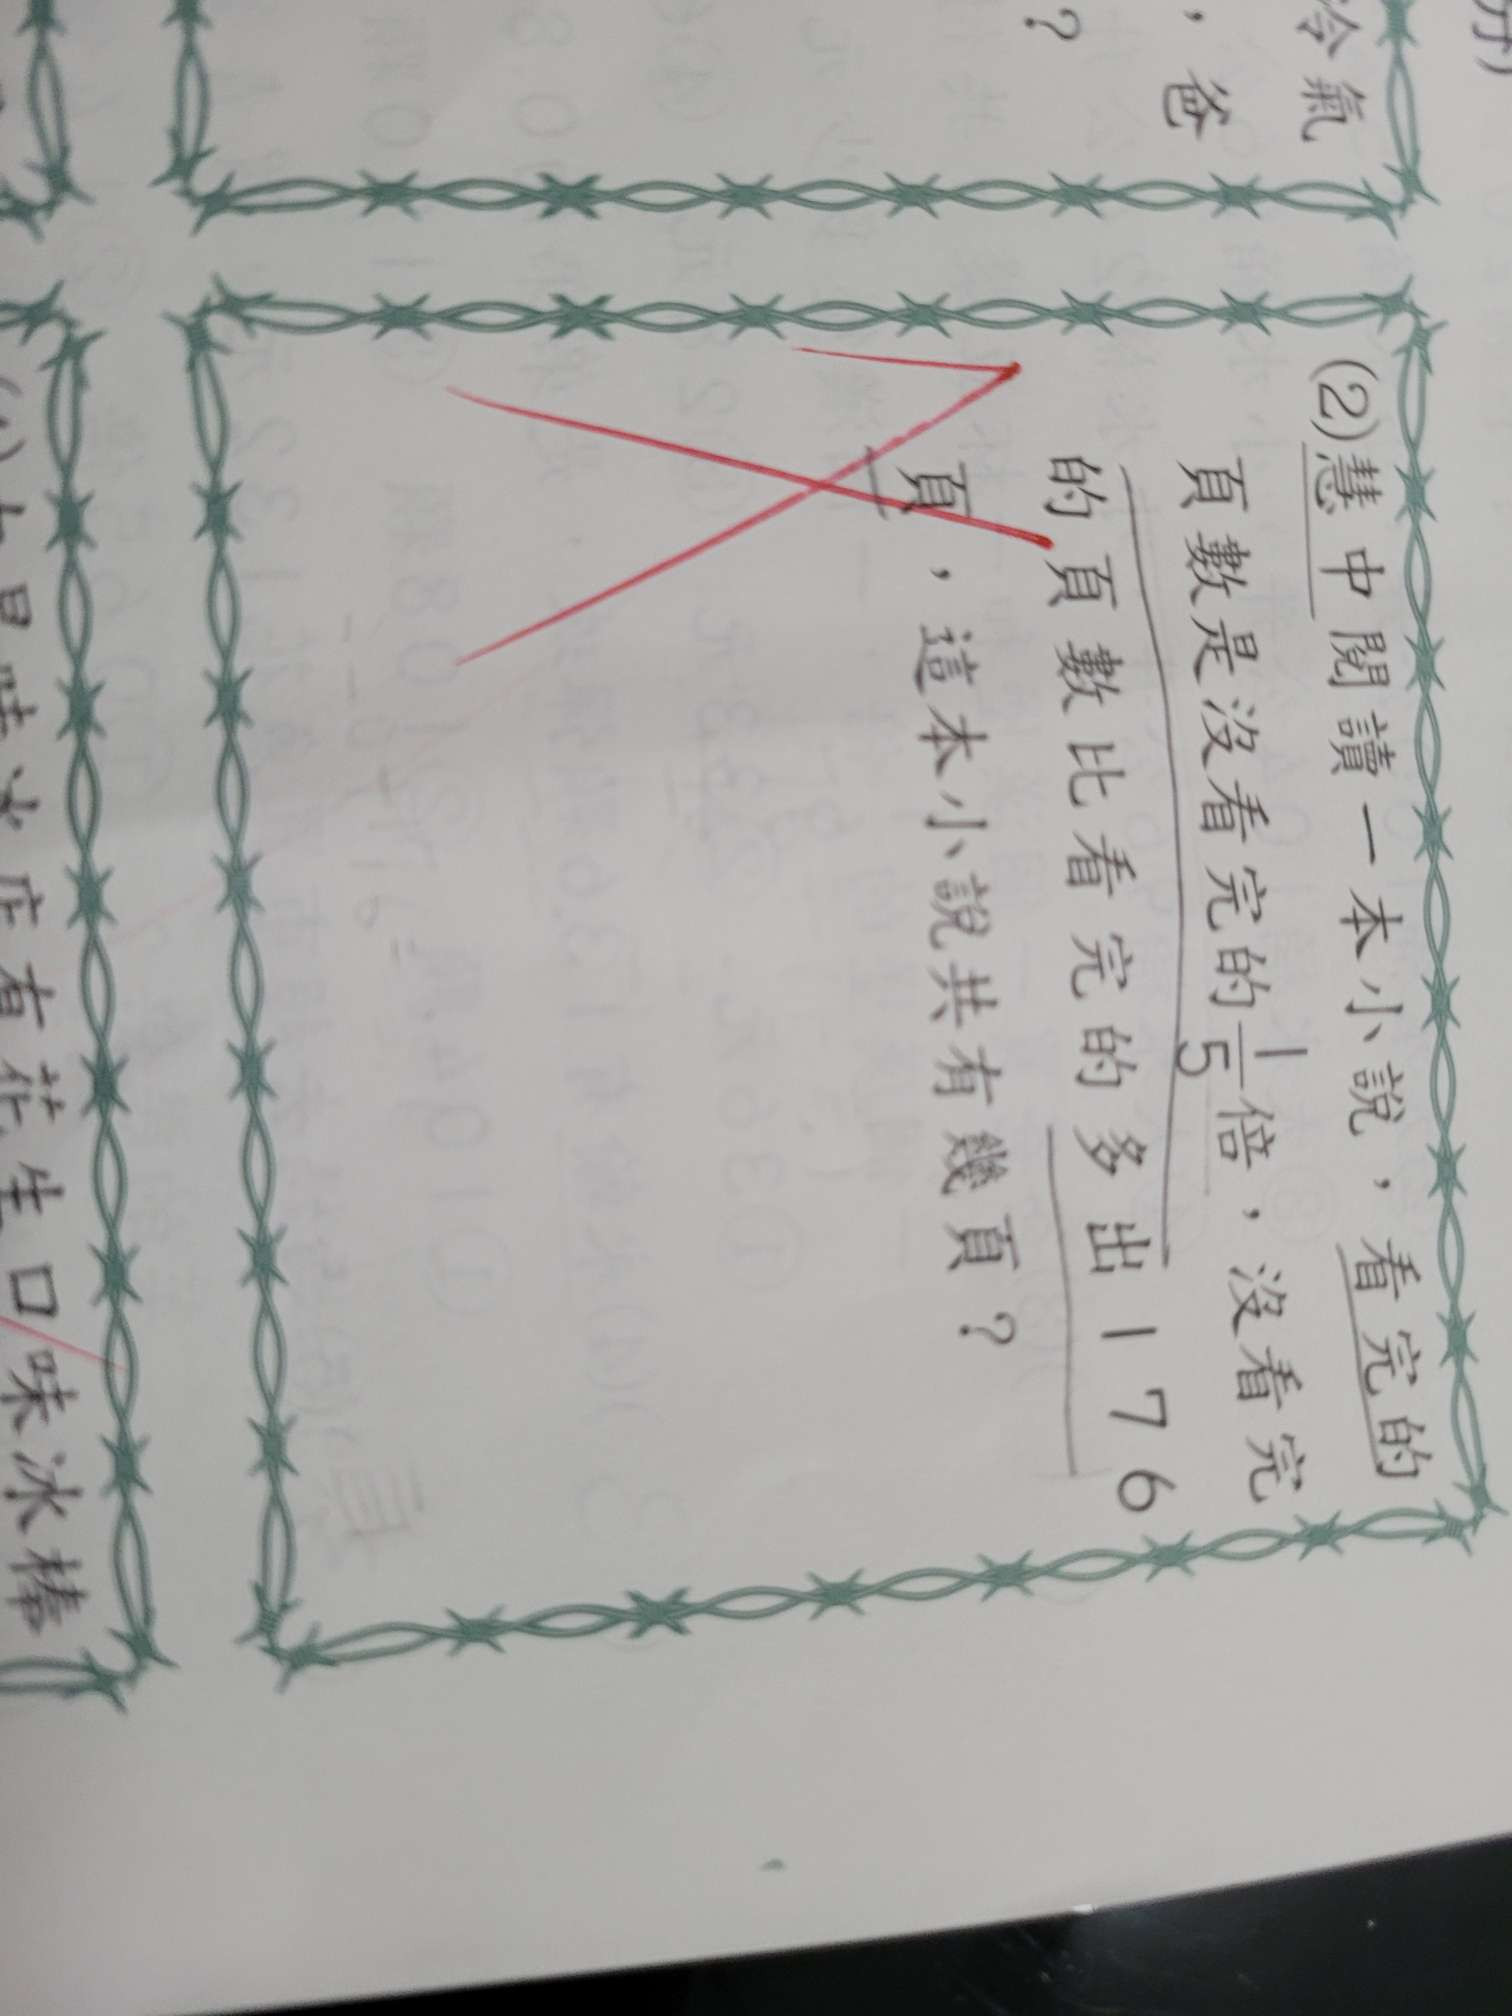 冷氣
，爸
？
(2)慧中閱讀一本小說，看完的
頁數是沒看完的1/5倍，沒看完
的頁數比看完的多出176
頁，這本小說共有幾頁？
味冰店有花生口味冰棒